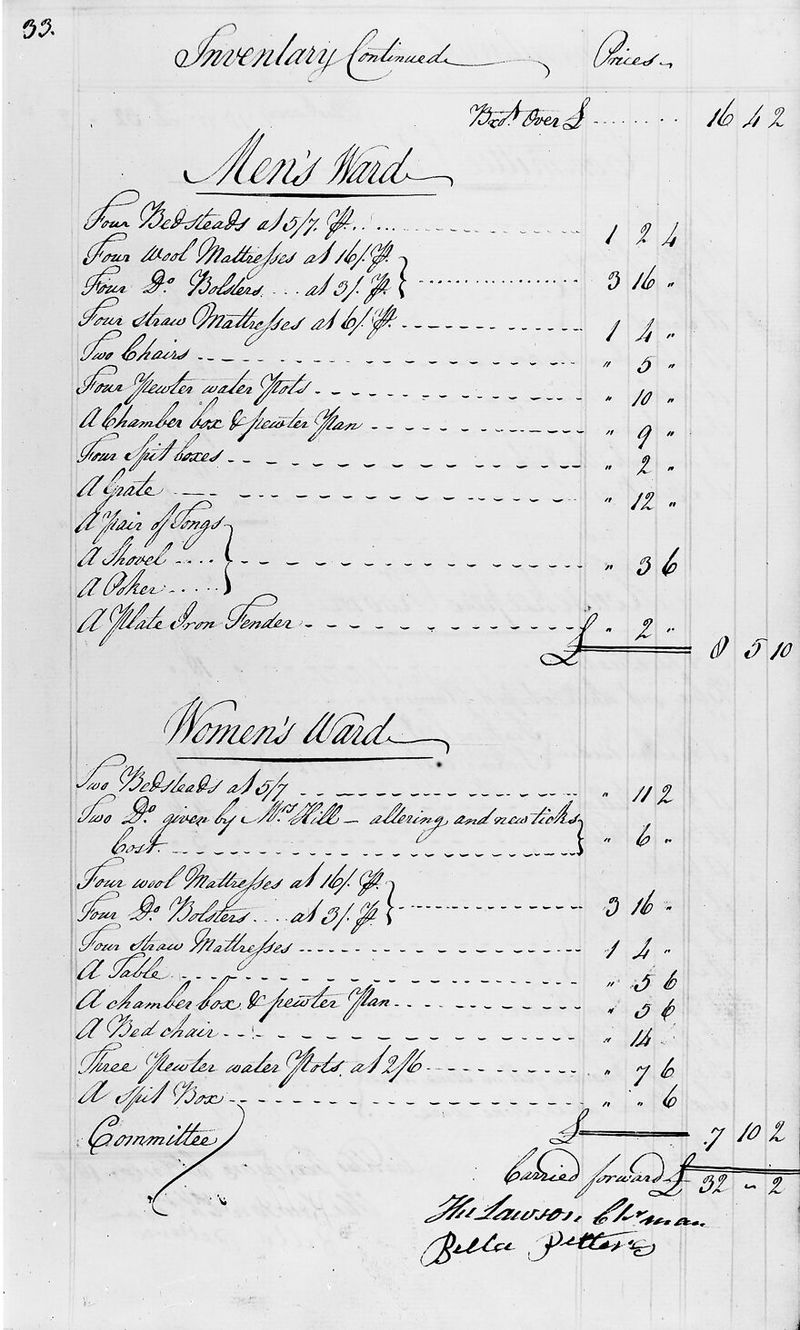 33.
Inventary Continued Prices
Bro.t Over £ 16 4 2
Men's Ward
Four Bedsteads at 5/7. ₶ 1 2 4
Four wool Mattresses at 16/. ₶
Four Do. Bolsters .... at 3/. ₶ 3 16 "
Four straw Mattresses at 6/. ₶ 1 4 "
Two Chairs " 5 "
Four Pewter water Pots " 10 "
A Chamber box & pewter Pan " 9 "
Four Spit boxes " 2 "
A Grate " 12 "
A Pair of Tongs
A Shovel .... " 3 6
A Poker .....
A Plate Iron Fender " 2 "
£ 8 5 10
Women's Ward
Two Bedsteads at 5/7 " 11 2
Two Do. given by Mrs. Hill - altering and new ticks
Cost. " 6 "
Four wool Mattresses at 16/. ₶
Four Do. Bolsters .... at 3/. ₶ 3 16 "
Four straw Mattresses 1 4 "
A Table " 5 6
A chamber box & pewter Pan " 5 6
A Bed chair " 14
Three Pewter water Pots at 2/6 " 7 6
A Spit Box " " 6
Committee £ 7 10 2
Carried forward £ 32 " 2
Thos Lawson, Chrman
Bella